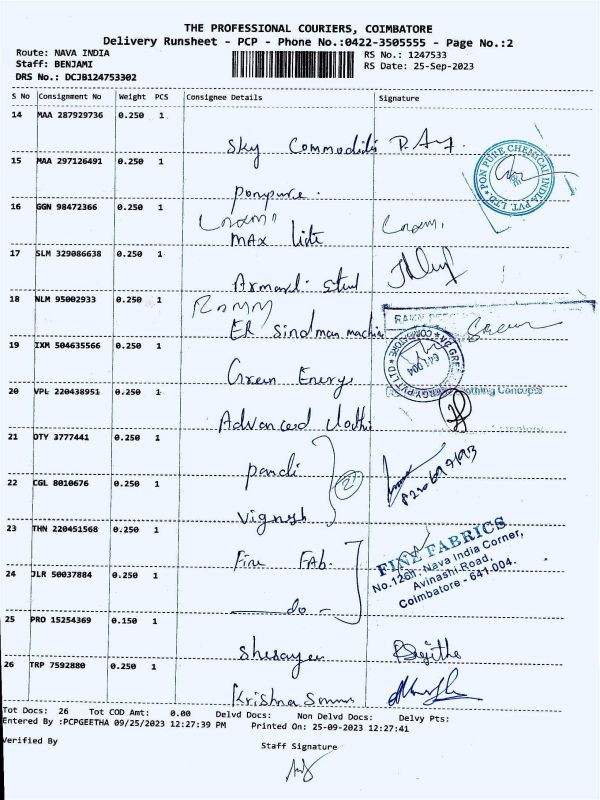 THE PROFESSIONAL COURIERS, COIMBATORE
Delivery Runsheet - PCP - Phone No.:0422-3505555 - Page No.:2
Route: NAVA INDIA
RS No.: 1247533
Staff: BENJAMI
RS Date: 25-Sep-2023
DRS No.: DCJB124753302
S No Consignment No Weight PCS Consignee Details Signature
14 MAA 287929736 0.250 1
Sky Commoditis
15 MAA 297126491 0.250 1
PON PURE CHEMICAL INDIA PVT. LTD.
Ponpure.
16 GGN 98472366 0.250 1
MAX lite
17 SLM 329086638 0.250 1
18 NLM 95002933 0.250 1
ER Sindman machine
19 IXM 504635566 0.250 1
COIMBATORE
641 004
Green Energy
20 VPL 220438951 0.250 1
Clothing Concepts
Advanced
21 OTY 3777441 0.250 1
pandi
22 CGL 8010676 0.250 1
2
Vignesh
23 THN 220451568 0.250 1
Fine FAb.
FINE FABRICS
No.1261, Nava India Corner,
Avinashi Road,
Coimbatore - 641 004.
24 JLR 50037884 0.250 1
do -
25 PRO 15254369 0.150 1
26 TRP 7592880 0.250 1
Krishna
Tot Docs: 26 Tot COD Amt: 0.00 Delvd Docs: Non Delvd Docs: Delvy Pts:
Entered By :PCPGEETHA 09/25/2023 12:27:39 PM Printed On: 25-09-2023 12:27:41
Verified By
Staff Signature